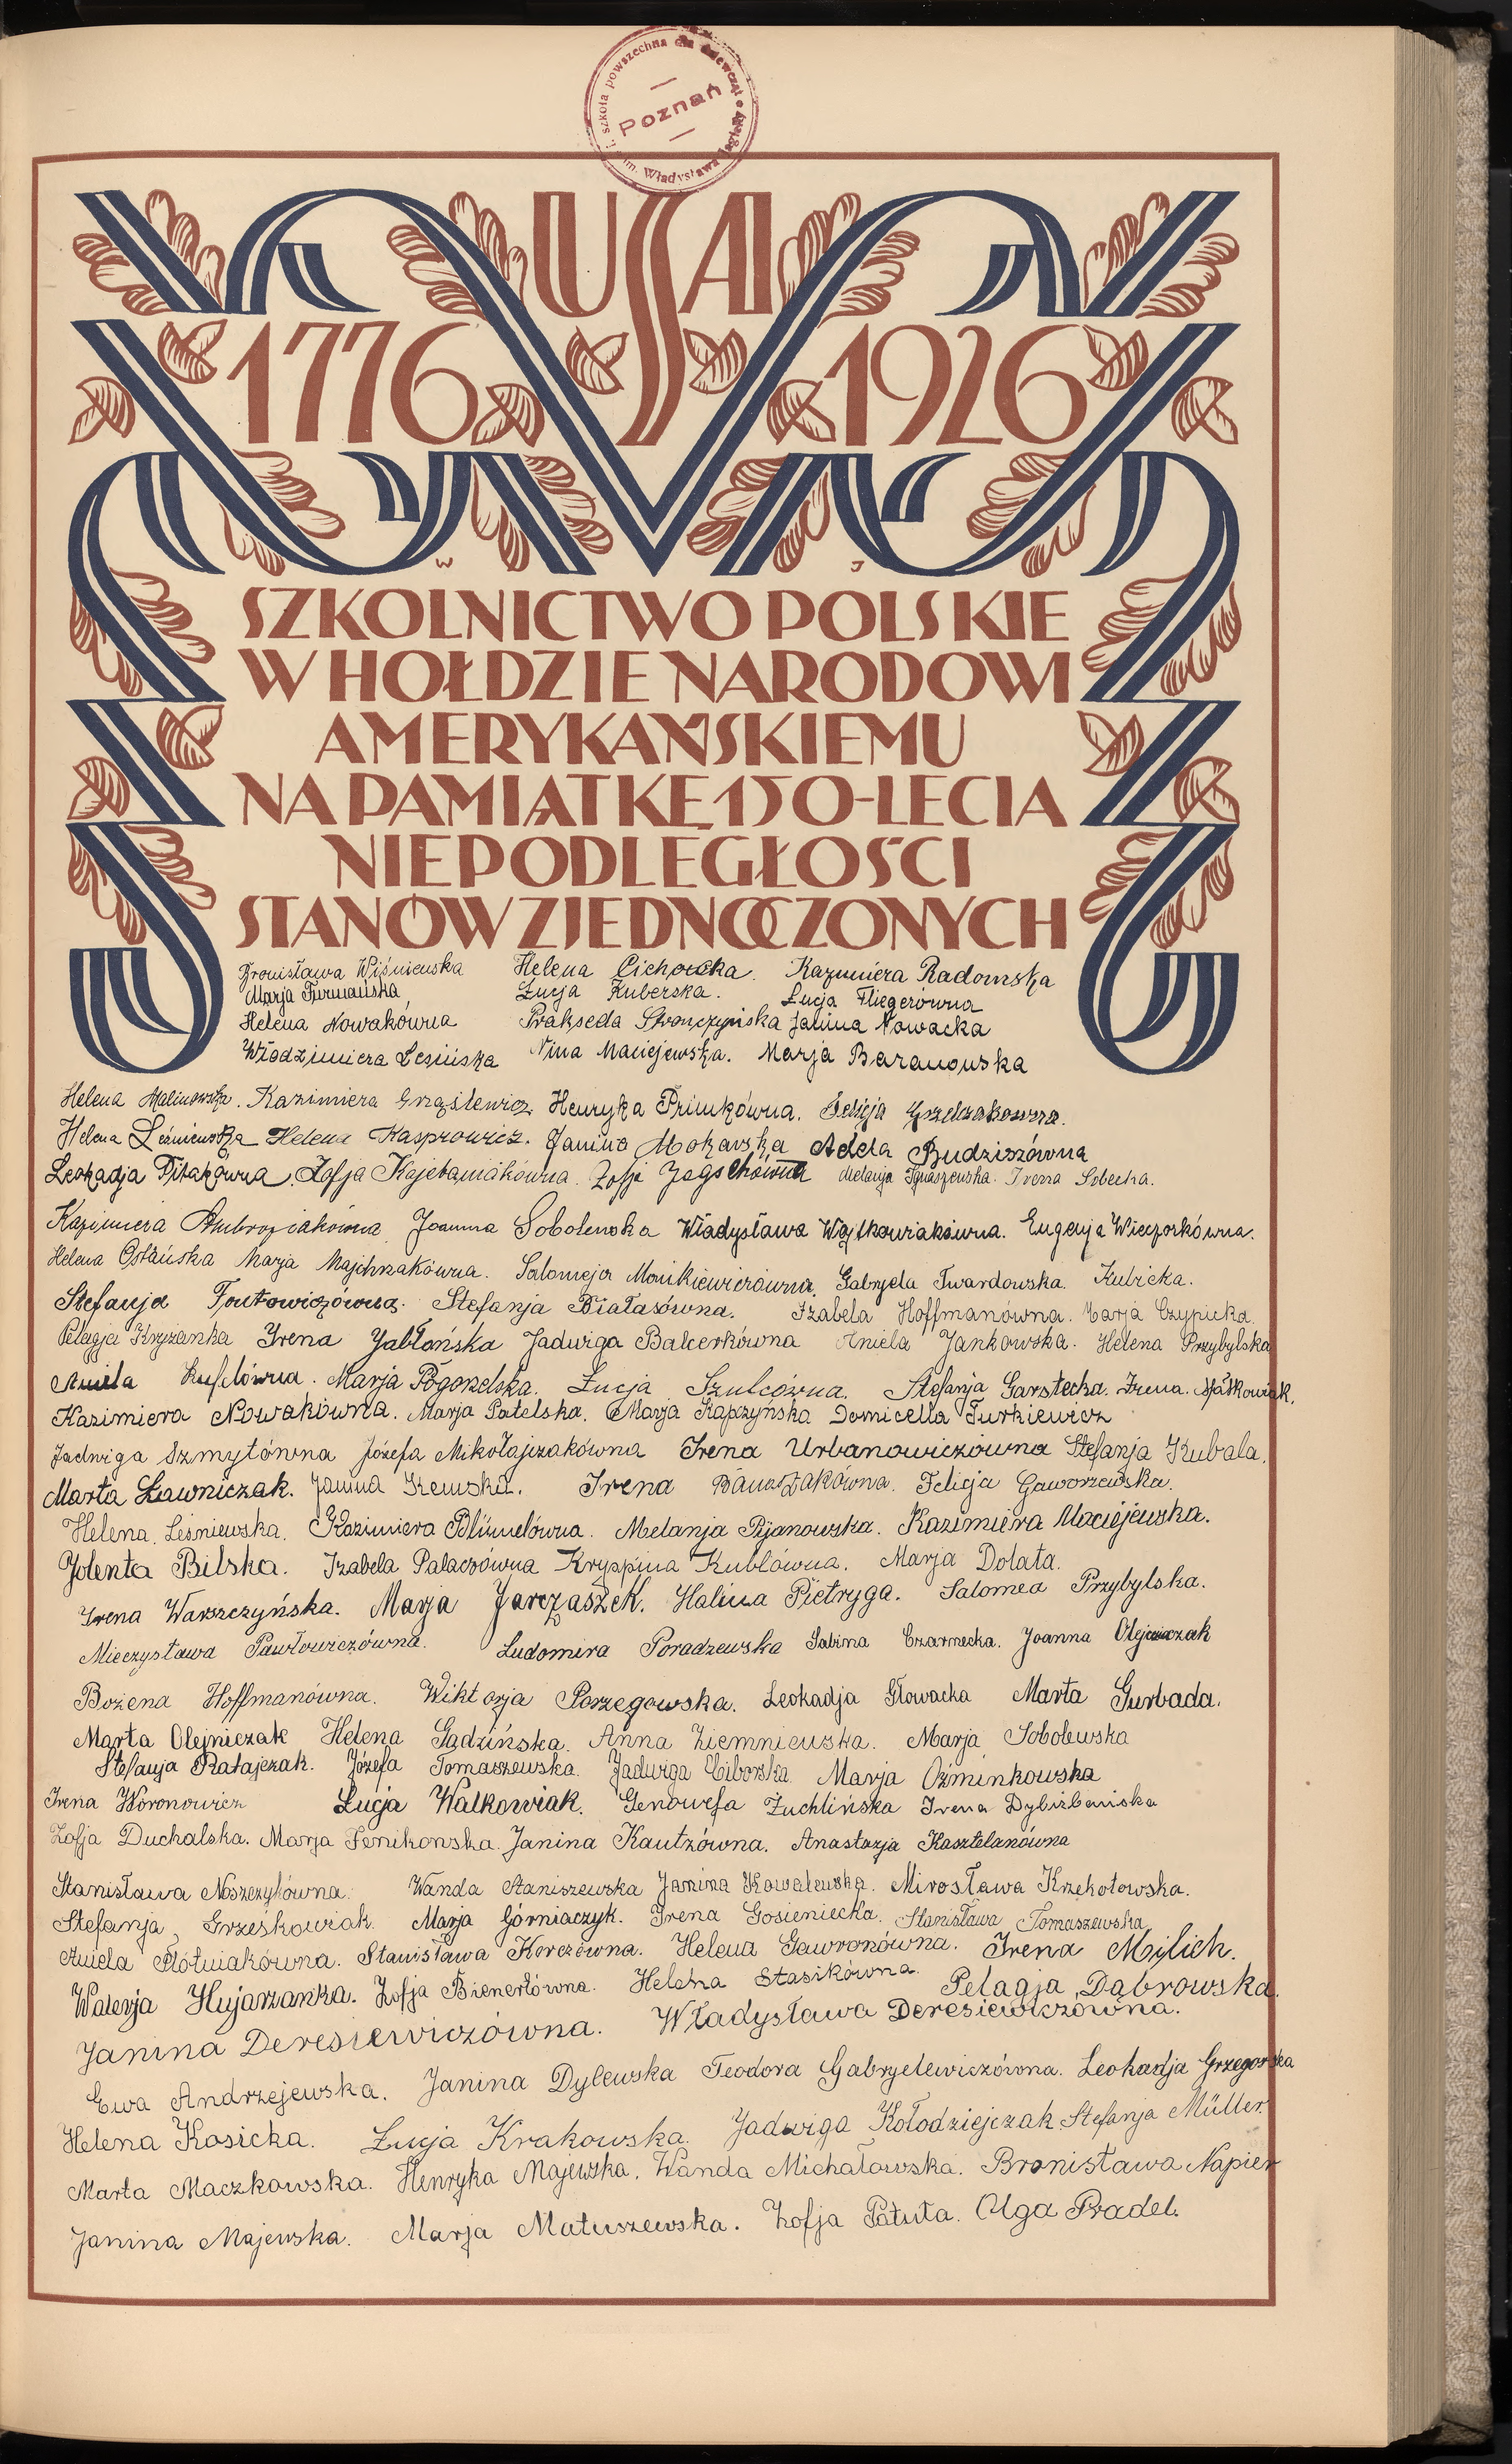 I. szkoła powszechna dla dziewcząt
im. Władysława Jagiełły
Poznań
USA
1776 1926
W J
SZKOLNICTWO POLSKIE
W HOŁDZIE NARODOWI
AMERYKAŃSKIEMU
NA PAMIĄTKĘ 150-LECIA
NIEPODLEGŁOŚCI
STANÓW ZJEDNOCZONYCH
Bronisława Wiśniewska Helena Cichocka. Kazimiera Radomska
Marja Furmańska Łucja Kuberska. Łucja Fliegerówna
Helena Nowakówna Prakseda Stronczyńska Janina Nowacka
Włodzimiera Lesińska Nina Maciejewska. Marja Baranowska
Helena Malinowska. Kazimiera Henryka Primkówna.
Helena Leśniewska Helena Kasprowicz. Janina Mokarska Adela Budziszówna
Leokadja Ptakówna. Zofja Kajetaniakówna. Zofja Jagschówna Melanja Ignaszewska. Irena Sobecka.
Kazimiera Ambroziakówna Joanna Sobolewska Władysława Wojtkowiakówna. Eugenja Wieczorkówna.
Helena Ostańska Marja Majchrzakówna. Salomeja Monikiewiczówna. Gabryela Twardowska. Kubicka.
Stefanja Stefanja Białasówna. Izabela Hoffmanówna. Marja Czypicka.
Pelagja Kryżanka Irena Jabłońska Jadwiga Balcerkówna Aniela Jankowska. Helena Przybylska
Aniela Marja Pogorzelska. Łucja Szulcówna. Stefanja Garstecka. Irena. Maśkowiak.
Kazimiera Nowakówna. Marja Patelska. Marja Kapczyńska Domicella Turkiewicz
Jadwiga Szmytówna Józefa Mikołajczakówna Irena Urbanowiczówna Stefanja Kubala.
Marta Ławniczak. Janina Irena Banaszakówna. Felicja Gaworzewska.
Helena. Leśniewska. Kazimiera Blümelówna. Melanja Pijanowska. Kazimiera Maciejewska.
Jolenta Bilska. Izabela Palaczówna Kryspina Kublówna. Marja Dolata.
Irena Warszczyńska. Marja Jarczaszek. Halina Pietryga. Salomea Przybylska.
Mieczysława Pawłowiczówna. Ludomira Poradzewska Sabina Czarnecka. Joanna Olejniczak
Bożena Hoffmanówna. Wiktorja Porzegowska. Leokadja Głowacka Marta Gurbada.
Marta Olejniczak Helena Gądzińska. Anna Ziemniewska. Marja Sobolewska
Stefanja Ratajczak. Józefa Tomaszewska. Jadwiga Ciborska Marja Oźminkowska
Irena Woronowicz Łucja Walkowiak. Genowefa Żuchlińska Irena Dybizbańska
Zofja Duchalska. Marja Fenikowska. Janina Kautzówna. Anastazja Kasztelanówna
Stanisława Noszczykówna. Wanda Staniszewska Janina Kowalewska. Mirosława Krzekotowska.
Stefanja Grześkowiak. Marja Górniaczyk. Irena Gosieniecka. Stanisława Tomaszewska
Aniela Płótniakówna. Stanisława Korczówna. Helena Gawronówna. Irena Mylich.
Walerja Hujarzanka. Zofja Bienertówna. Helena Stasikówna. Pelagja Dąbrowska.
Janina Deresiewiczówna. Władysława Deresiewiczówna.
Ewa Andrzejewska. Janina Dylewska Teodora Gabryelewiczówna. Leokadja Grzegorska
Helena Kosicka. Łucja Krakowska. Jadwiga Kołodziejczak. Stefanja Müller.
Marta Maczkowska. Henryka Majewska. Wanda Michałowska. Bronisława Napier
Janina Majewska. Marja Matuszewska. Zofja Patuta. Olga Pradel.